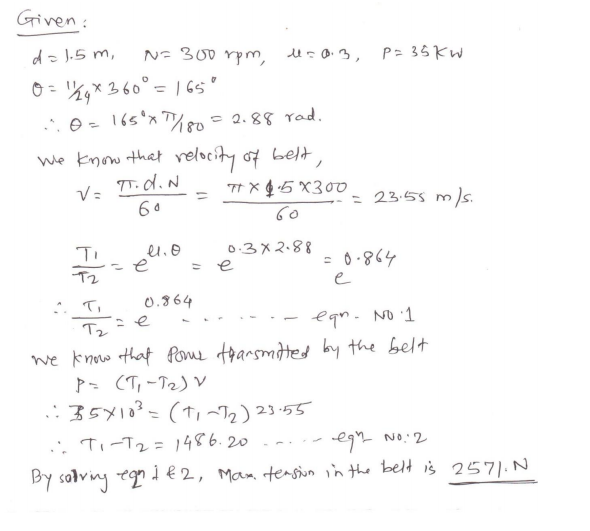 Given :
d = 1.5 m, N = 300 rpm, μ = 0.3, P = 35 KW
θ = 11/24 × 360° = 165°
∴ θ = 165° × π/180 = 2.88 rad.
we know that velocity of belt,
V = π.d.N / 60 = π × 1.5 × 300 / 60 = 23.55 m/s.
T1/T2 = e^μ.θ = e^0.3×2.88 = e^0.864
∴ T1/T2 = e^0.864 - - - - - - - - eqn. NO.1
we know that Power transmitted by the belt
P = (T1 - T2) V
∴ 35×10³ = (T1 - T2) 23.55
∴ T1 - T2 = 1486.20 - - - - - eqn NO.:2
By solving eqn 1 & 2, Max tension in the belt is 2571. N